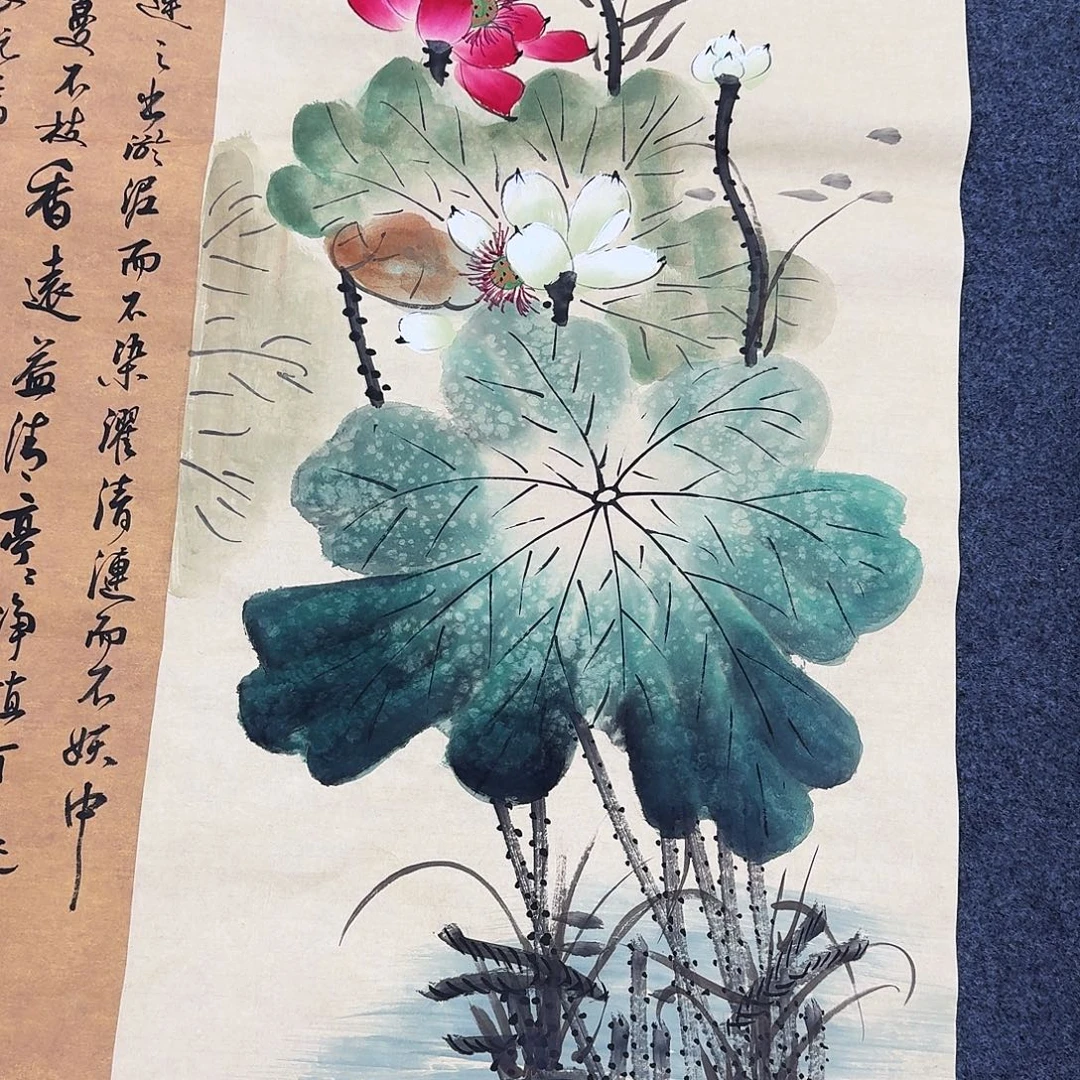 蓮之出淤泥而不染濯清漣而不妖中
蔓不枝香遠益清亭〻净植可